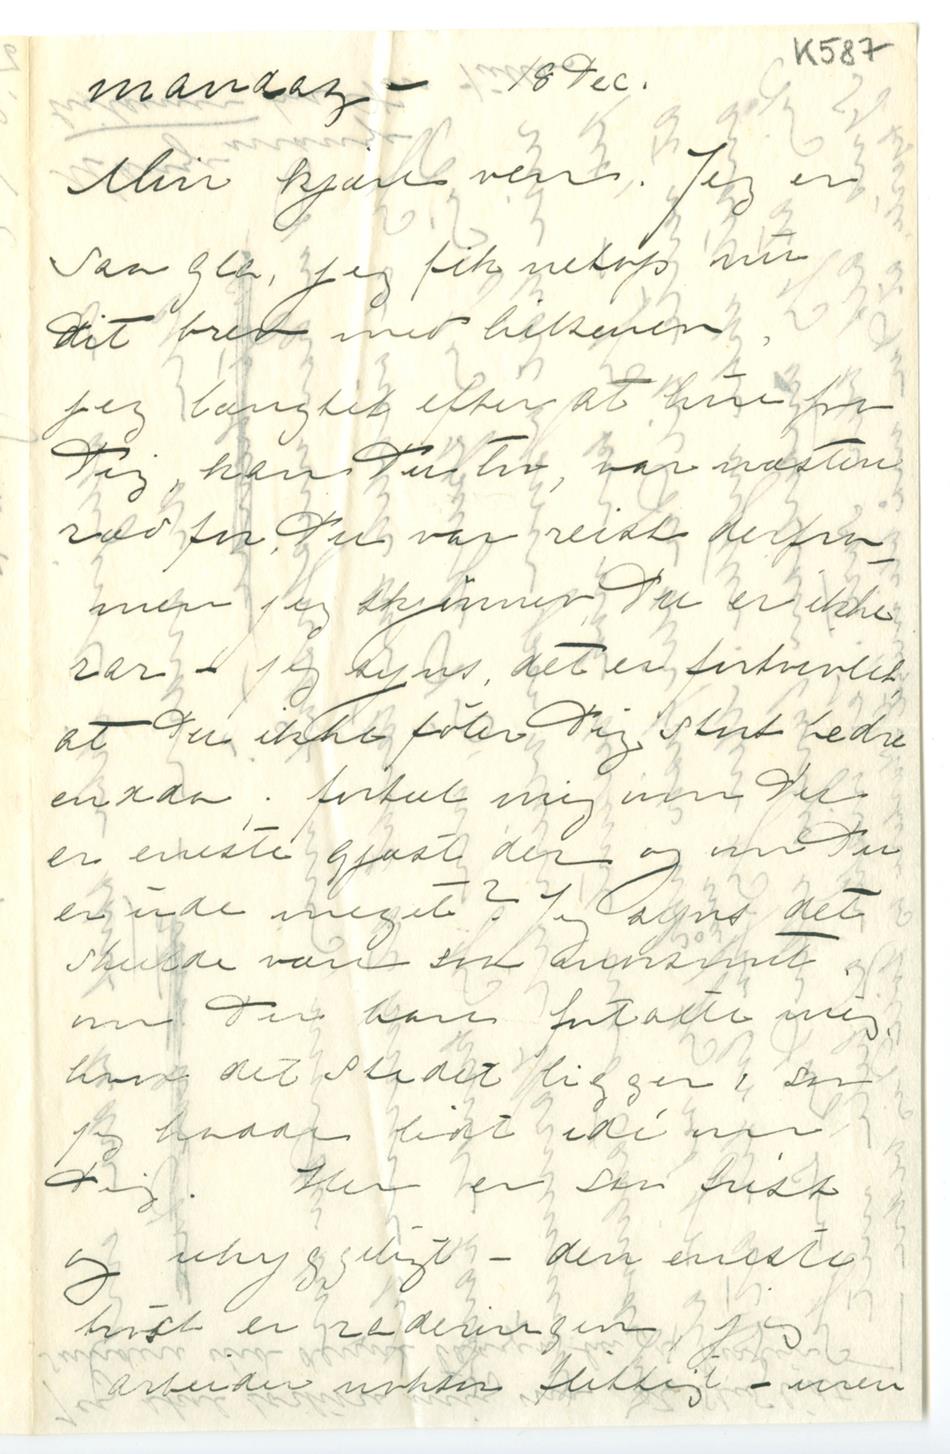 K587
mandag – 18 Dec.
Min kjære ven. Jeg er
saa gla, jeg fik netop nu
dit brev med
jeg længtet efter at høre fra
Dig, kan Du tro, var næsten
ræd for, Du var reist derfra –
men jeg skjønner, Du er ikke
rar – jeg syns, det er fortvivlet,
at Du ikke føler Dig stort bedre
endda. fortæl mig om Du
er eneste gjæst der og om Du
er ude meget? Jeg syns det
skulde være saa morsomt.
om Du kan fortælle mig,
hvor det stedet ligger, saa
jeg havde lidt idé om
Dig. Her er saa trist
og uhyggeligt – den eneste
trøst er raderingen, jeg
arbeider nokså flittigt – men